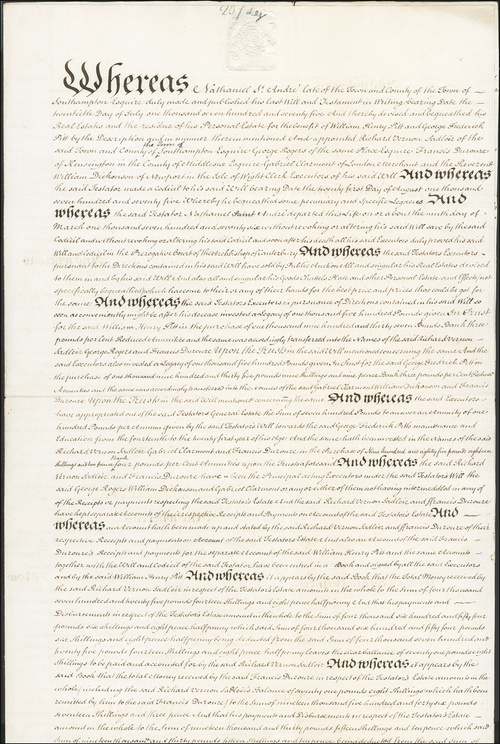 Whereas Nathaniel St. André late of the Town and County of the Town of
Southampton Esquire duly made and published his last Will and Testament in Writing bearing Date the
twentieth Day of July one thousand seven hundred and seventy five And thereby devised and bequeathed his
Real Estates and the residue of his Personal Estate for the benefit of William Henry Pitt and George Frederick
Pitt by the Description and in manner therein mentioned And appointed Richard Vernon Sadleir of the
said Town and County of the Town of Southampton Esquire George Rogers of the same Place Esquire Francis Duroure
of Kensington in the County of Middlesex Esquire Gabriel Clarmont of London Merchant and the Reverend
William Dickonson of Newport in the Isle of Wight Clerk Executors of his said Will And whereas
the said Testator made a Codicil to his said Will bearing Date the twenty first Day of August one thousand
seven hundred and seventy five Whereby he bequeathed some pecuniary and Specific Legacies And
whereas the said Testator Nathaniel Saint André departed this Life on or about the ninth day of
March one thousand seven hundred and seventy six without revoking or altering his said Will save by the said
Codicil and without revoking or altering his said Codicil and soon after his death all his said Executors duly proved his said
Will and Codicil in the Prerogative Court of the Archbishop of Canterbury And whereas the said Testators Executors
pursuant to the Directions contained in his said Will have sold by Public Auction all and singular his Real Estates devised
to them in and by his said Will And also all and singular his Goods Chattels and other Personal Estate and Effects not
specifically bequeathed which have come to their or any of their hands for the best price and prices that could be got for
the same And whereas the said Testators Executors in pursuance of Directions contained in his said Will so
soon as conveniently might be after his decease invested a Legacy of one thousand and five hundred Pounds given In Trust
for the said William Henry Pitt in the purchase of one thousand nine hundred and thirty seven Pounds Bank three
pounds per Cent Reduced Annuities and the same was accordingly transferred into the Names of the said Richard Vernon
Sadleir George Rogers and Francis Duroure Upon the Trusts in the said Will mentioned concerning the same And the
said Executors also invested a Legacy of one thousand five hundred Pounds given In Trust for the said George Frederick Pitt in
the purchase of one thousand nine hundred and thirty five pounds nine shillings and nine pence Bank three pounds per Cent Reduced
Annuities and the same was accordingly transferred into the names of the said Gabriel Clarmont William Dickonson and Francis
Duroure Upon the Trusts in the said Will mentioned concerning the same And whereas the said Executors
have appropriated out of the said Testators General Estate the Sum of seven hundred Pounds to answer an annuity of one
hundred Pounds per annum given by the said Testators Will towards the said George Frederick Pitts maintenance and
Education from the fourteenth to the twenty first year of his Age And the same hath been invested in the Names of the said
Richard Vernon Sadleir Gabriel Clarmont and Francis Duroure in the Purchase of Nine hundred and eighty five pounds eighteen
shillings and four pence Bank four pounds per Cent Annuities upon the Trusts aforesaid And whereas the said Richard
Vernon Sadleir and Francis Duroure have been the Principal acting Executors under the said Testators Will the
said George Rogers William Dickonson and Gabriel Clarmont or any or either of them not having intermeddled in any of
the Receipts or payments respecting the said Testators Estate and the said Richard Vernon Sadleir and Francis Duroure
have kept separate Accounts of their respective Receipts and Payments on Account of the said Testators Estate And
whereas an Account hath been made up and stated by the said Richard Vernon Sadleir and Francis Duroure of their
respective Receipts and payments on Account of the said Testators Estate And also an account of the said Francis
Duroure's Receipts and payments for the separate Account of the said William Henry Pitt and the same Accounts
together with the Will and Codicil of the said Testator have been entred in a Book and signed by all the said Executors
and by the said William Henry Pitt And whereas it appears by the said Book that the Total Money received by
the said Richard Vernon Sadleir in respect of the Testators Estate amounts in the whole to the Sum of four thousand
seven hundred and twenty five pounds fourteen Shillings and eight pence halfpenny And that his payments and
Disbursements in respect of the Testators Estate amount in the whole to the Sum of four thousand six hundred and fifty four
pounds six shillings and eight pence halfpenny which said Sum of four thousand six hundred and fifty four pounds
six Shillings and eight pence halfpenny being deducted from the said Sum of four thousand seven hundred and
twenty five pounds fourteen Shillings and eight pence halfpenny leaves the clear ballance of seventy one pounds eight
Shillings to be paid and accounted for by the said Richard Vernon Sadleir And whereas it appears by the
said Book that the total Money received by the said Francis Duroure in respect of the Testators Estate amounts in the
whole including the said Richard Vernon Sadleir's Balance of seventy one pounds eight Shillings which hath been
remitted by him to the said Francis Duroure to the Sum of nineteen thousand five hundred and forty six pounds
seventeen Shillings and three pence And that his payments and Disbursements in respect of the Testators Estate
amount in the whole to the Sum of nineteen thousand and thirty pounds fifteen Shillings and ten pence which said
Sum of nineteen thousand and thirty pounds fifteen Shillings and ten pence